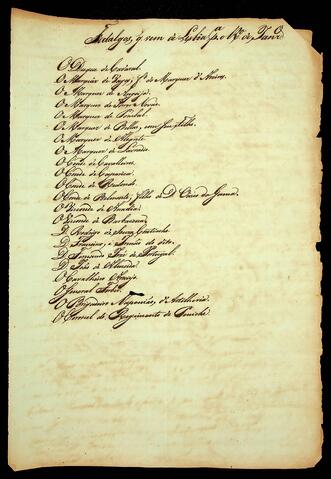 Fidalgos, q̃ vem de Lisboa pª o Rº de Janrº
O Duque de Cadaval.
O Marquez de Vagos, Fº do Marquez d'
O Marquez de Angeja
O Marquez de Torres Novas
O Marquez de Pombal
O Marquez de Bellas, com seu filho
O Marquez de Alegrete
O Marquez de Lavradio
O Conde de Cavalleiros
O Conde de Caparica
O Conde de Redondo
O Conde de Belmonte, filho de D. da Gama
O Visconde de Anadia
O Visconde de Barbacena
D. Rodrigo de Souza Coutinho
D. Francisco, e Irmão do dito
D. Fernando José de Portugal
D. João de Almeida
O Cavalheiro Araujo
O General Forbes
O Brigadeiro d'Artilharia
O Coronel do Regimento de Peniche